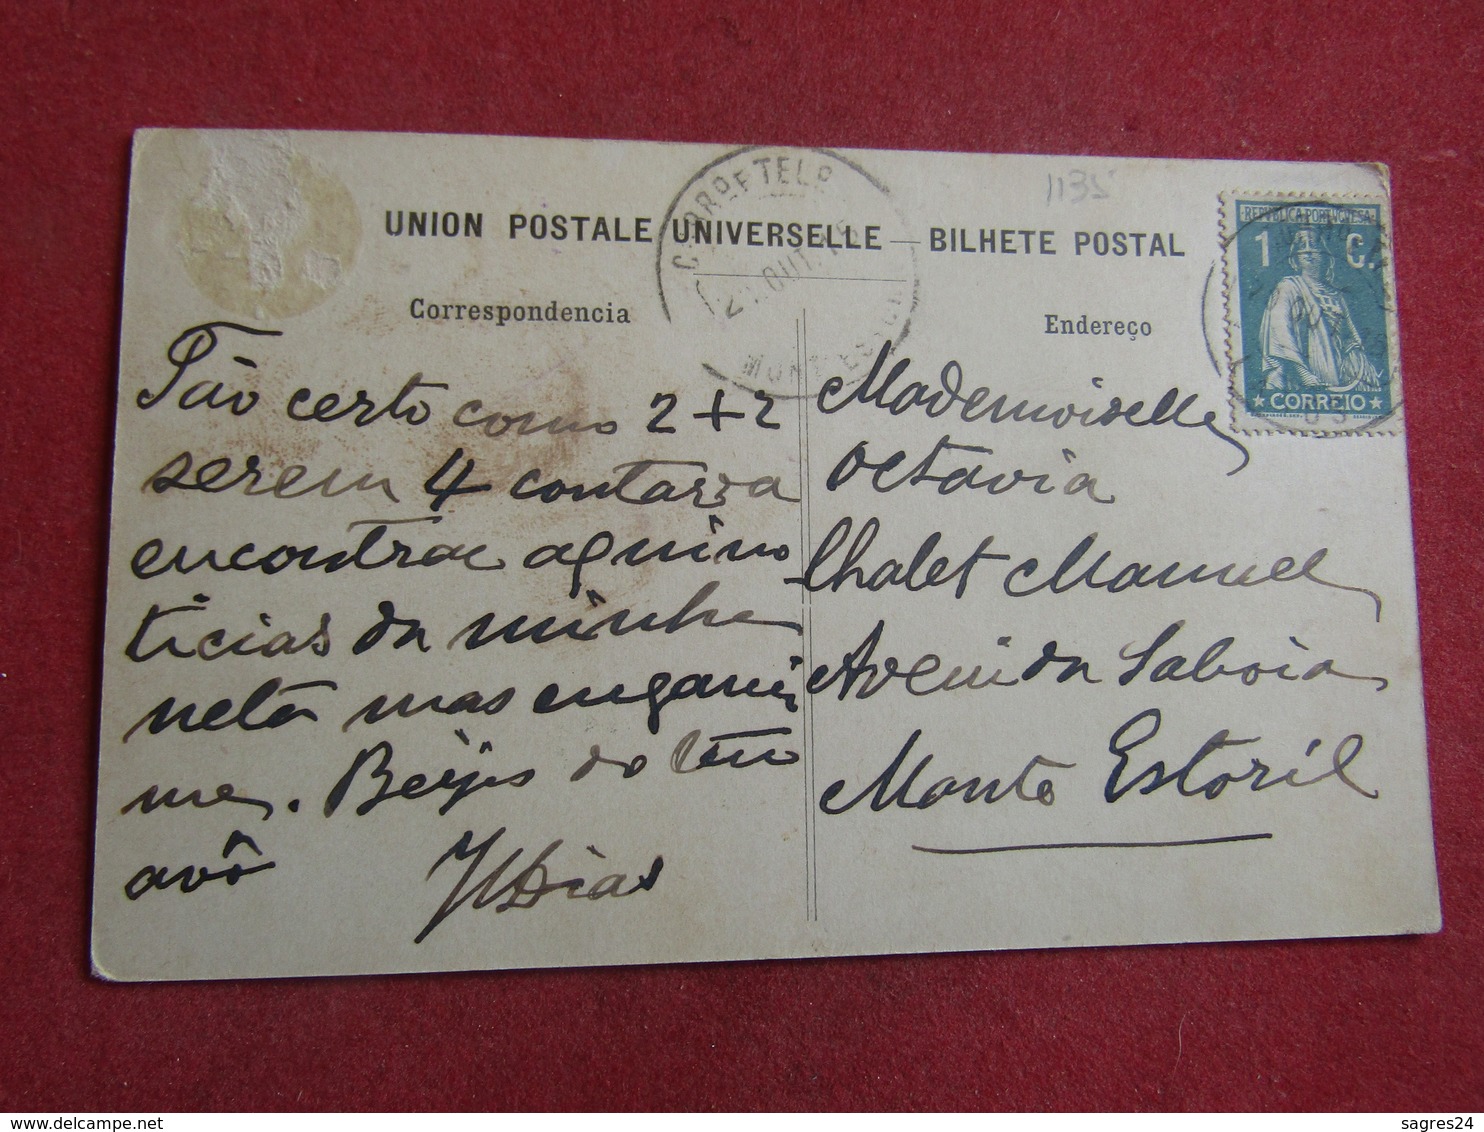 UNION POSTALE UNIVERSELLE — BILHETE POSTAL
Correspondencia
Tão certo como 2+2
serem 4 contava
encontrar aqui no
ticias da minha
neta mas enganei
me. Beijos do teu
avô
Dias
Endereço
Mademoiselle
Octavia
Chalet Manuel
Avenida Saboia
Monte Estoril
1135
CORRO E TELO
OUT.
REPUBLICA PORTUGUESA
1 C.
CORREIO
sagres24